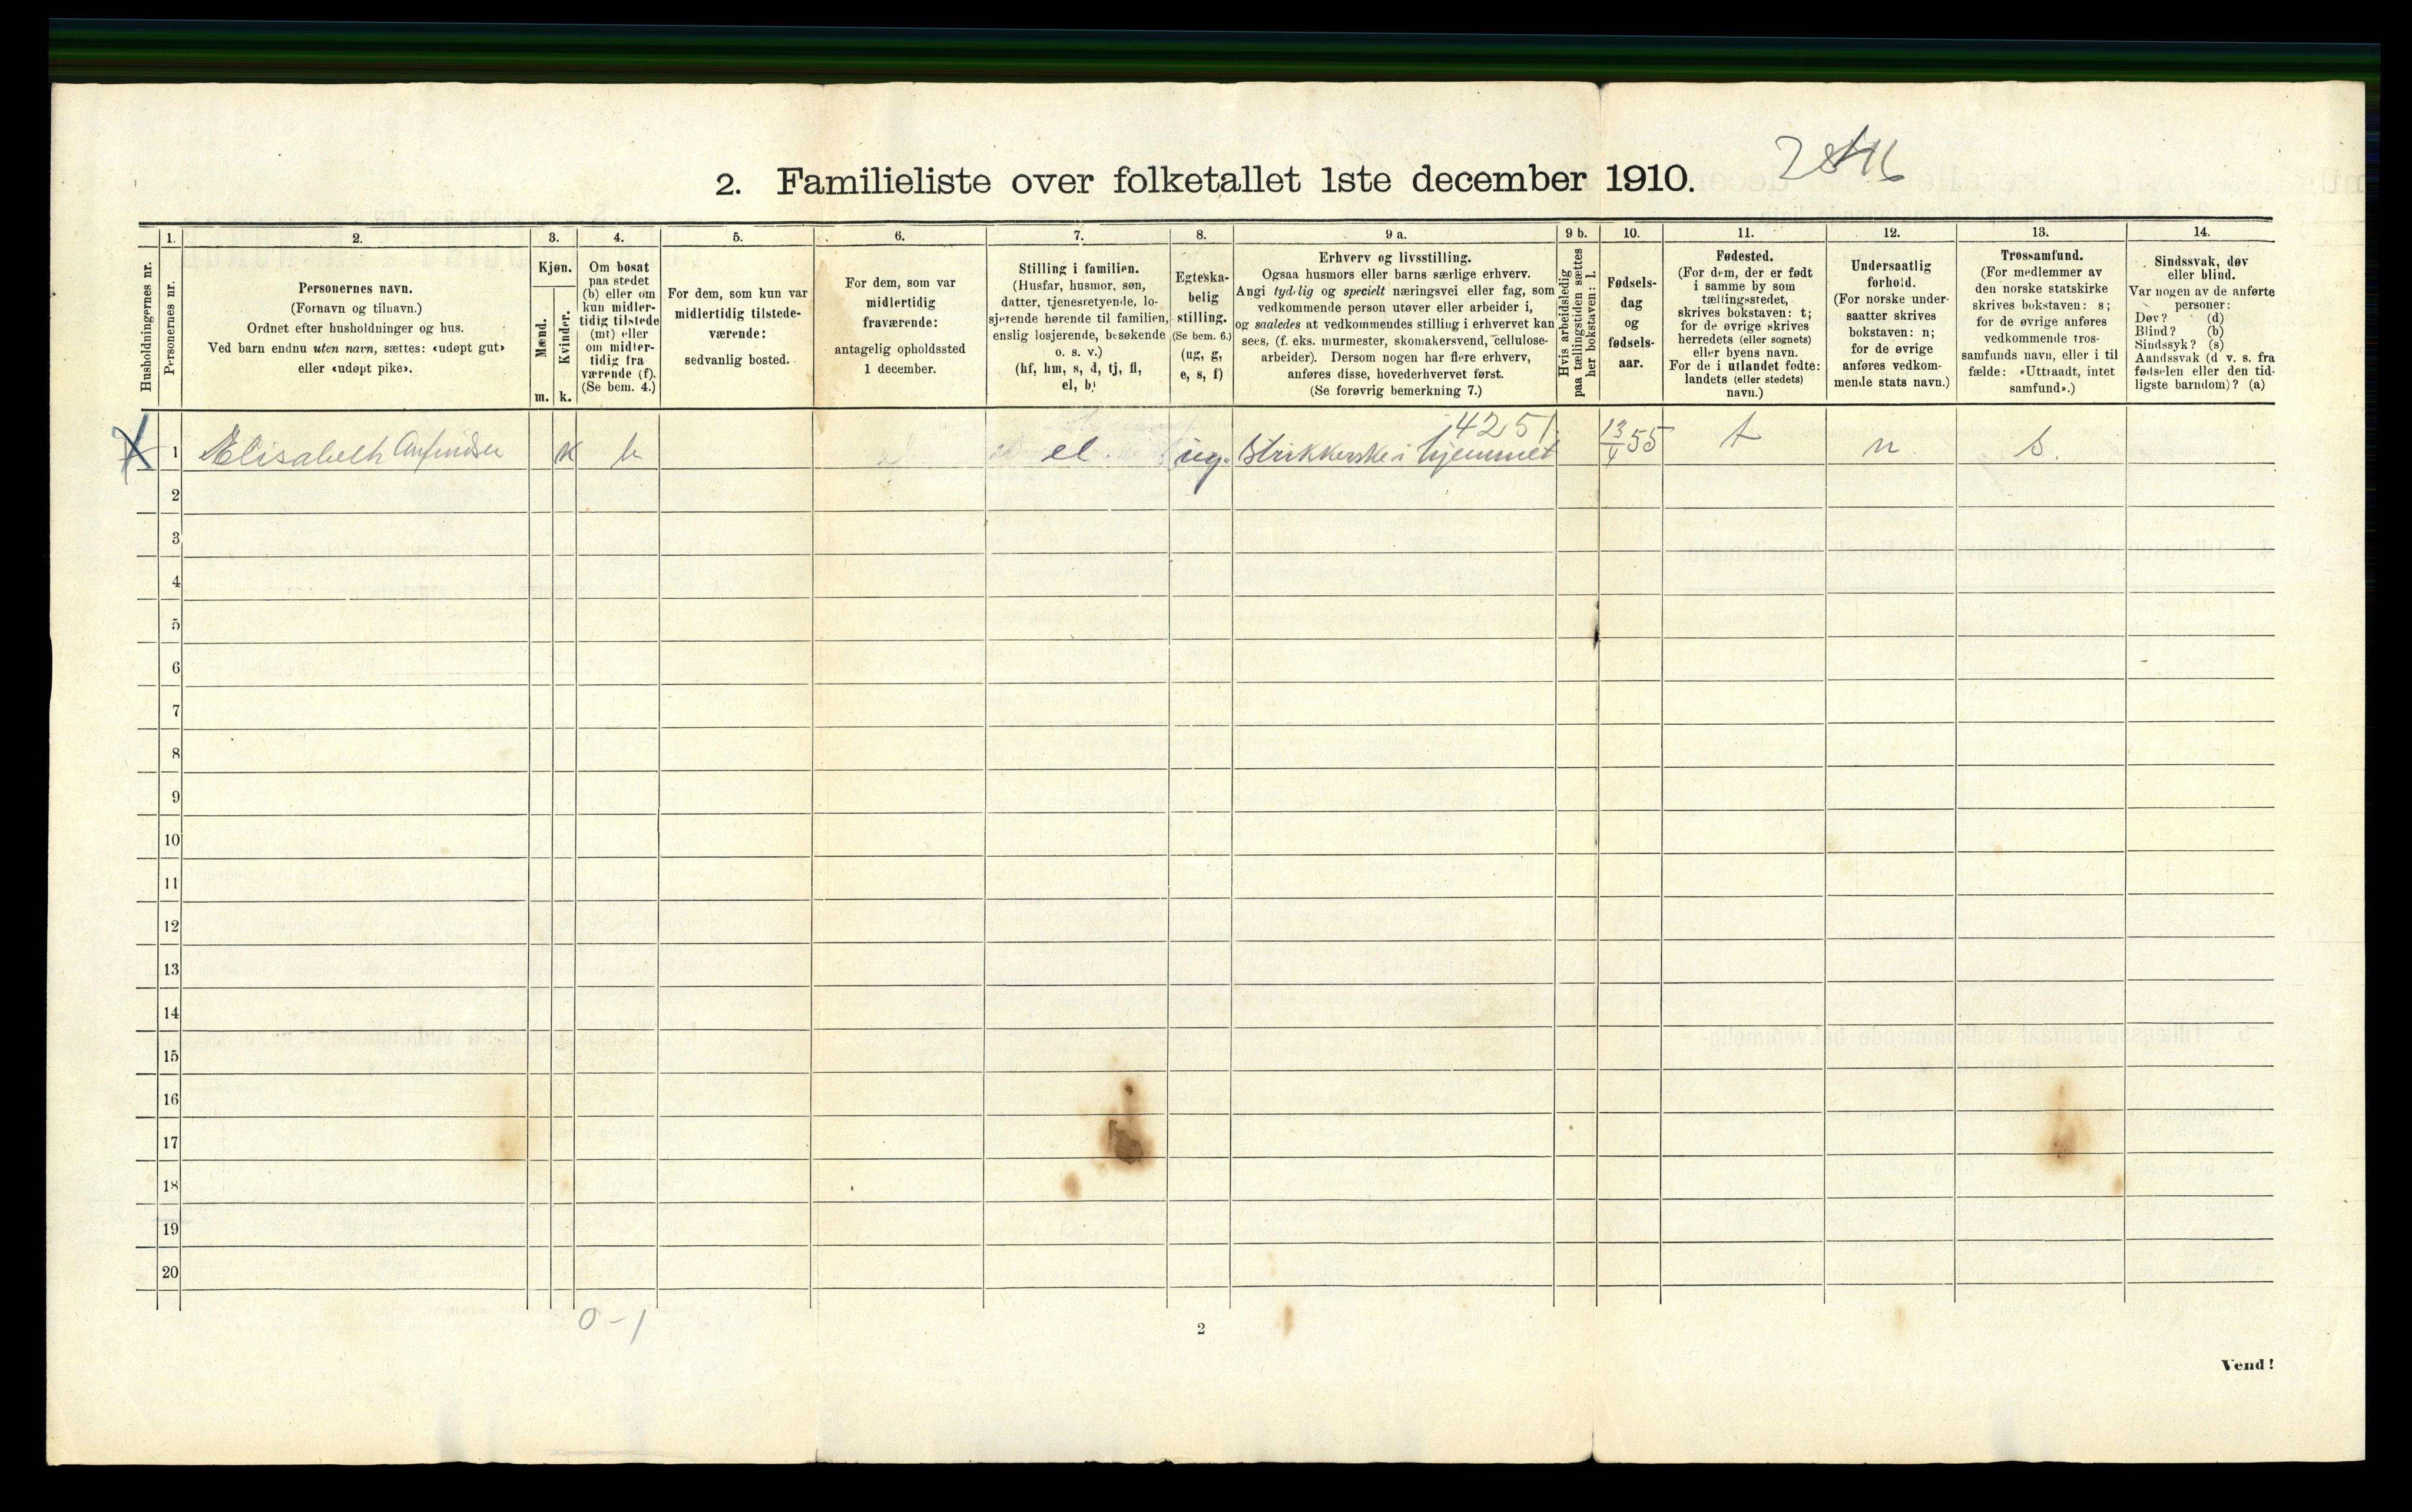 2. Familieliste over folketallet 1ste december 1910.
Husholdningernes nr.
1.
Personernes nr.
2.
Personernes navn.
(Fornavn og tilnavn.)
Ordnet efter husholdninger og hus.
Ved barn endnu uten navn, sættes: «udøpt gut»
eller «udøpt pike».
3.
Kjøn.
Mænd.
Kvinder.
m. k.
4.
Om bosat
paa stedet
(b) eller om
kun midler-
tidig tilstede
(mt) eller
om midler-
tidig fra
værende (f).
(Se bem. 4.)
5.
For dem, som kun var
midlertidig tilstede-
værende:
sedvanlig bosted.
6.
For dem, som var
midlertidig
fraværende:
antagelig opholdssted
1 december.
7.
Stilling i familien.
(Husfar, husmor, søn,
datter, tjenestetyende, lo-
sjerende hørende til familien,
enslig losjerende, besøkende
o. s. v.)
(hf, hm, s, d, tj, fl,
el, b)
8.
Egteska-
belig
stilling.
(Se bem. 6.)
(ug, g,
e, s, f)
9 a.
Erhverv og livsstilling.
Ogsaa husmors eller barns særlige erhverv.
Angi tydelig og specielt næringsvei eller fag, som
vedkommende person utøver eller arbeider i,
og saaledes at vedkommendes stilling i erhvervet kan
sees, (f. eks. murmester, skomakersvend, cellulose-
arbeider). Dersom nogen har flere erhverv,
anføres disse, hovederhvervet først.
(Se forøvrig bemerkning 7.)
9 b.
Hvis arbeidsledig
paa tællingstiden sættes
her bokstaven: l.
10.
Fødsels-
dag
og
fødsels-
aar.
11.
Fødested.
(For dem, der er født
i samme by som
tællingsstedet,
skrives bokstaven: t;
for de øvrige skrives
herredets (eller sognets)
eller byens navn.
For de i utlandet fødte:
landets (eller stedets)
navn.)
12.
Undersaatlig
forhold.
(For norske under-
saatter skrives
bokstaven: n;
for de øvrige
anføres vedkom-
mende stats navn.)
13.
Trossamfund.
(For medlemmer av
den norske statskirke
skrives bokstaven: s;
for de øvrige anføres
vedkommende tros-
samfunds navn, eller i til
fælde: «Uttraadt, intet
samfund».)
14.
Sindssvak, døv
eller blind.
Var nogen av de anførte
personer:
Døv? (d)
Blind? (b)
Sindssyk? (s)
Aandssvak (d v. s. fra
fødselen eller den tid-
ligste barndom)? (a)
4251.
1 Elisabeth Anfindsen k b el. ug. Strikkerske i hjemmet 13/4 55 t n s.
2
3
4
5
6
7
8
9
10
11
12
13
14
15
16
17
18
19
20
0-1
2
Vend!